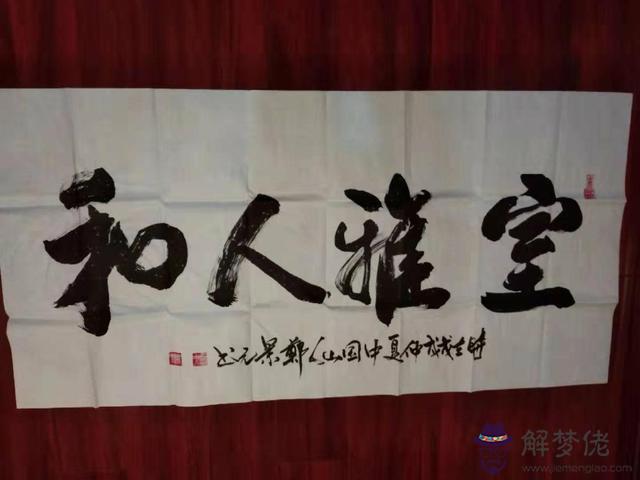 室雅人和
時在戊戌仲夏中国山人鄭景元书
解梦佬
www.jiemenglao.com